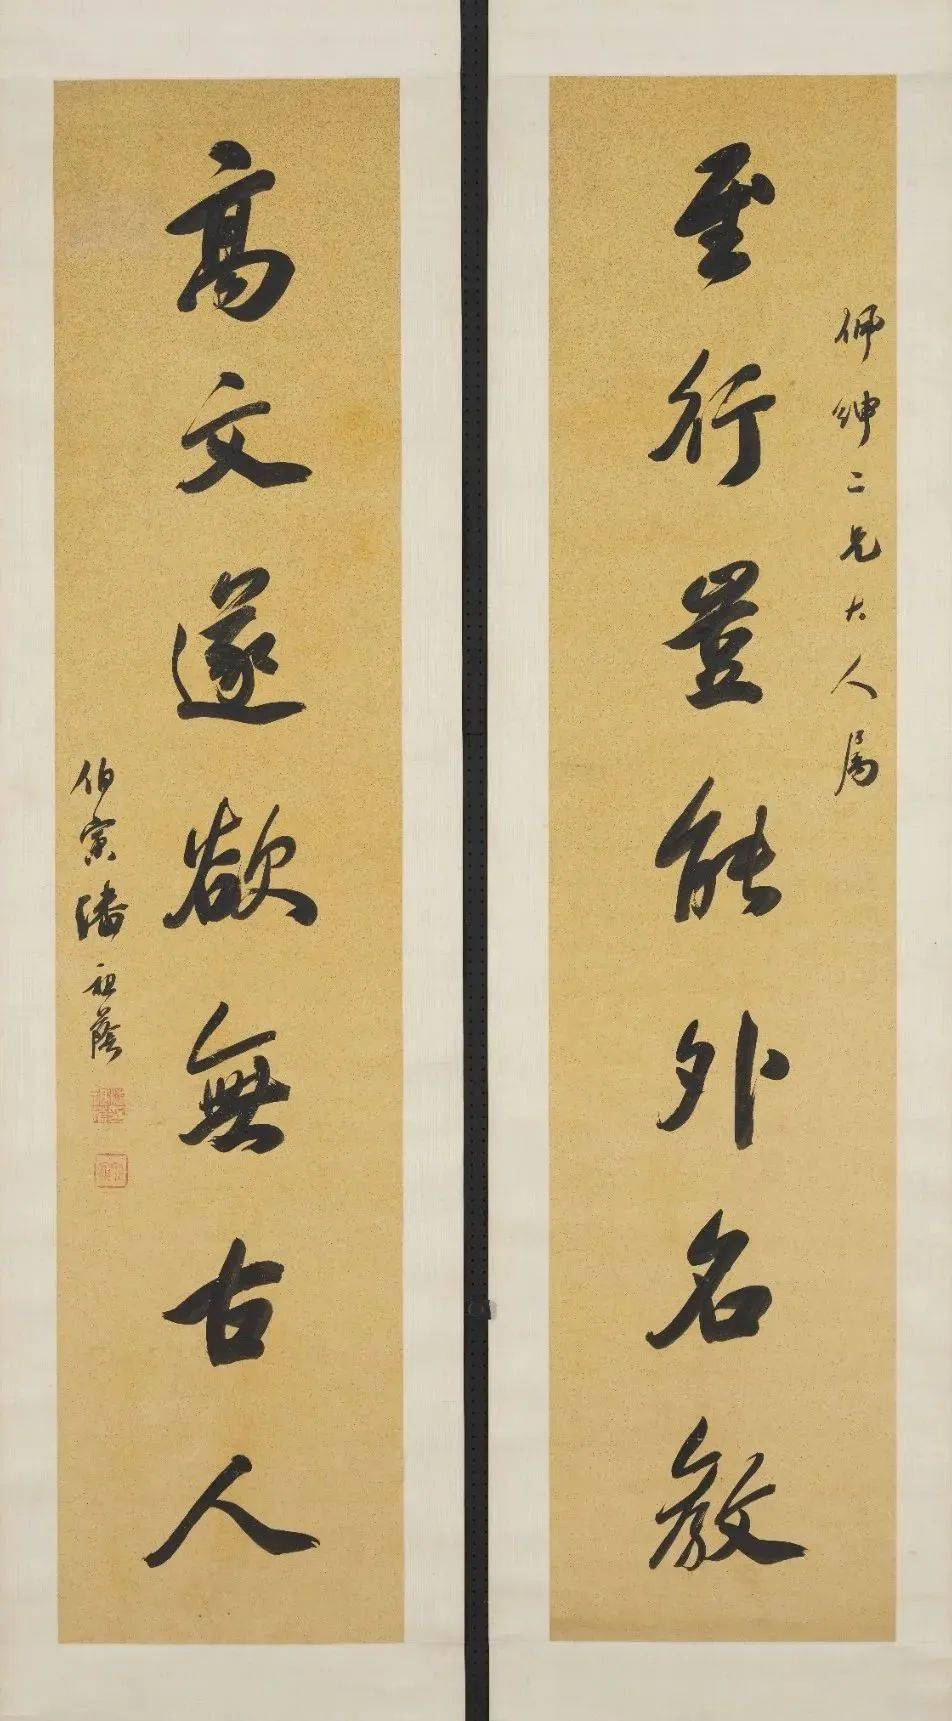 佩紳二兄大人属
至行豈能外名教
高文遂欲無古人
伯寅潘祖蔭